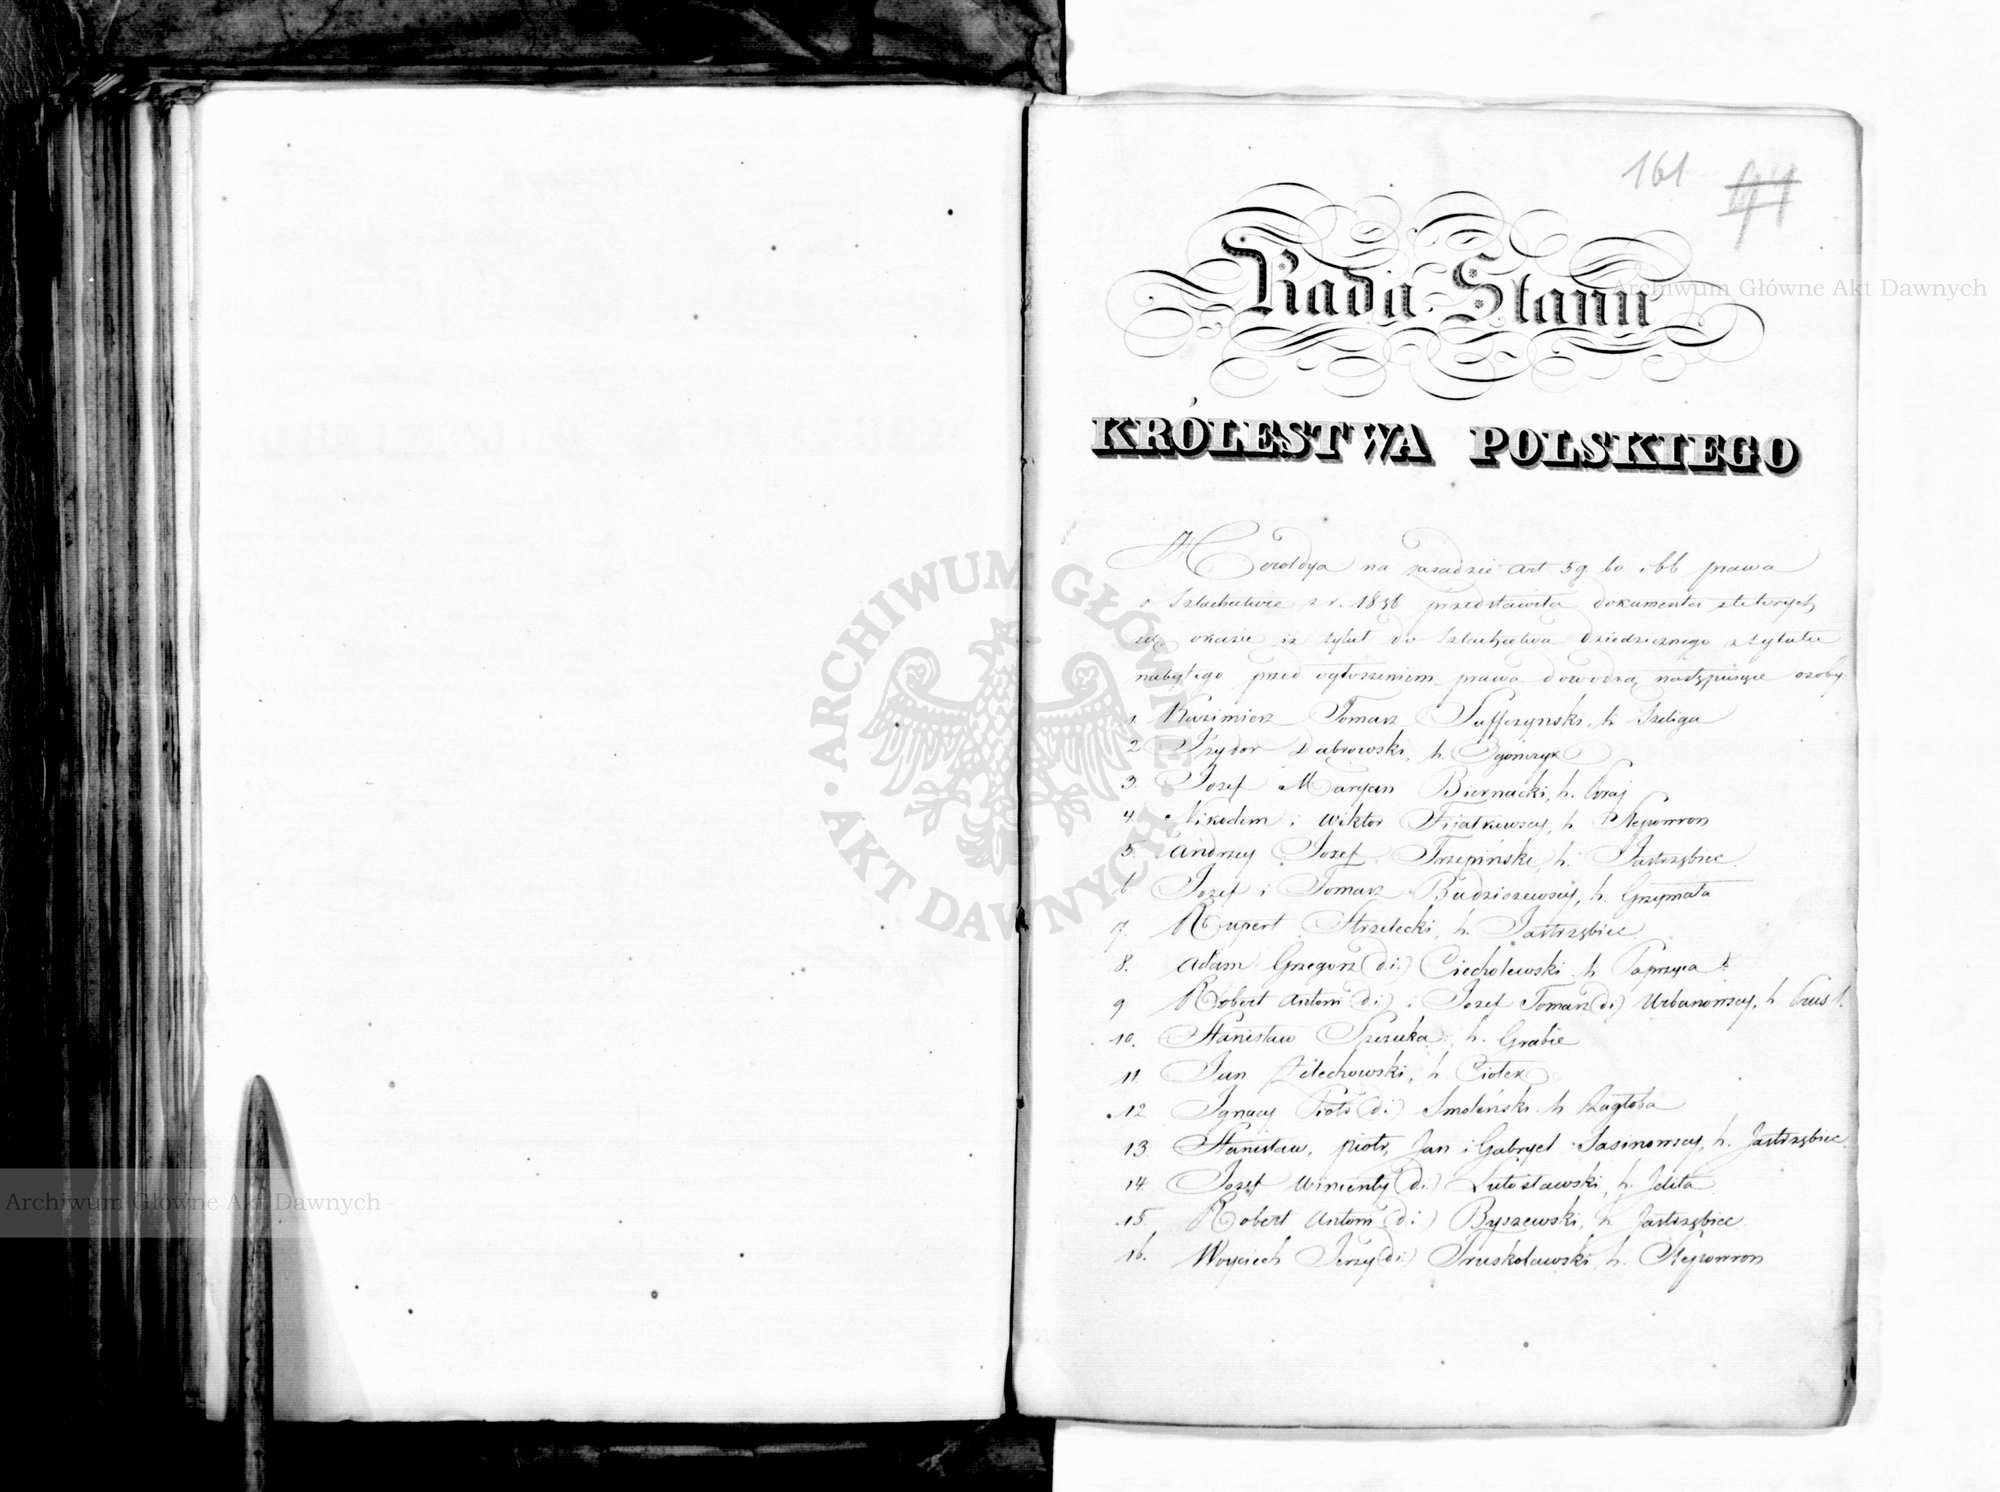 161 
Rada Stanu
KRÓLESTWA POLSKIEGO
Heroldya na zasadzie art 59 60 i 66 prawa
o Szlachectwie z r. 1836 przedstawiła dokumenta z których
się okazie iż tytuł do Szlachectwa dziedzicznego z tytułu
nabytego przed ogłoszeniem prawa dowodzą następuiące osoby
1. Kazimierz Tomasz Suffczynski, h. Szeliga
2. Izydor Dąbrowski, h. Ogończyk
3. Jozef Maryan Biernacki, h. Poraj
4. Nikodem i Wiktor Fijałkowscy, h. Slepowron
5. Andrzey Jozef Trzepiński, h. Jastrzębiec
6. Jozef i Tomasz Budziszewscy, h. Grzymała
7. Rupert Strzelecki, h. Jastrzębiec
8. Adam Grzegorz (2 i.) Ciecholewski h. Paprzyca
9. Robert Antoni (2 i.) i Jozef Tomasz (2 i.) Urbanowscy, h. Prus 1.
10. Stanisław h. Grabie
11. Jan Żelechowski, h. Ciołek
12. Ignacy Piotr (2 i.) Smoleński h. Zagłoba
13. Stanisław, Piotr, Jan i Gabryel Jasinowscy, h. Jastrzębiec
14. Jozef Wincenty (2 i.) Lutosławski, h. Jelita
15. Robert Antoni (2 i.) Byszewski, h. Jastrzębiec
16. Woyciech Jerzy (2 i.) Truskolawski, h. Slepowron
Archiwum Główne Akt Dawnych
ARCHIWUM GŁÓWNE
AKT DAWNYCH
Archiwum Główne Akt Dawnych